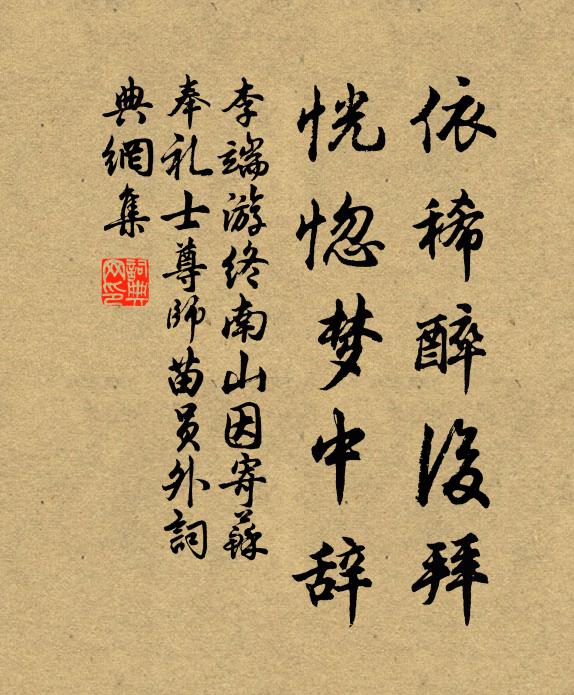 依稀醉後拜
恍惚梦中辞
李端游终南山因寄蘇
奉礼士尊師苗员外詞
典網集
詞典
网印